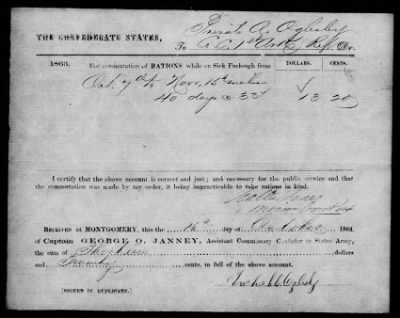 Private A. Oglesby
THE CONFEDERATE STATES,
To Co. C. 1st Ark Regt Dr.
1863. For commutation of RATIONS while on Sick Furlough from DOLLARS. CENTS.
Oct. 7th to Nov. 15th
40 days @ 33¢ 13 20
I certify that the above account is correct and just; and necessary for the public service and that
the commutation was made by my order, it being impracticable to take rations in kind.
RECEIVED AT MONTGOMERY, this day of 1863,
of Captain GEORGE O. JANNEY, Assistant Commissary Confederate States Army,
the sum of Thirteen dollars
and Twenty cents, in full of the above account.
[SIGNED IN DUPLICATE.] Oglesby